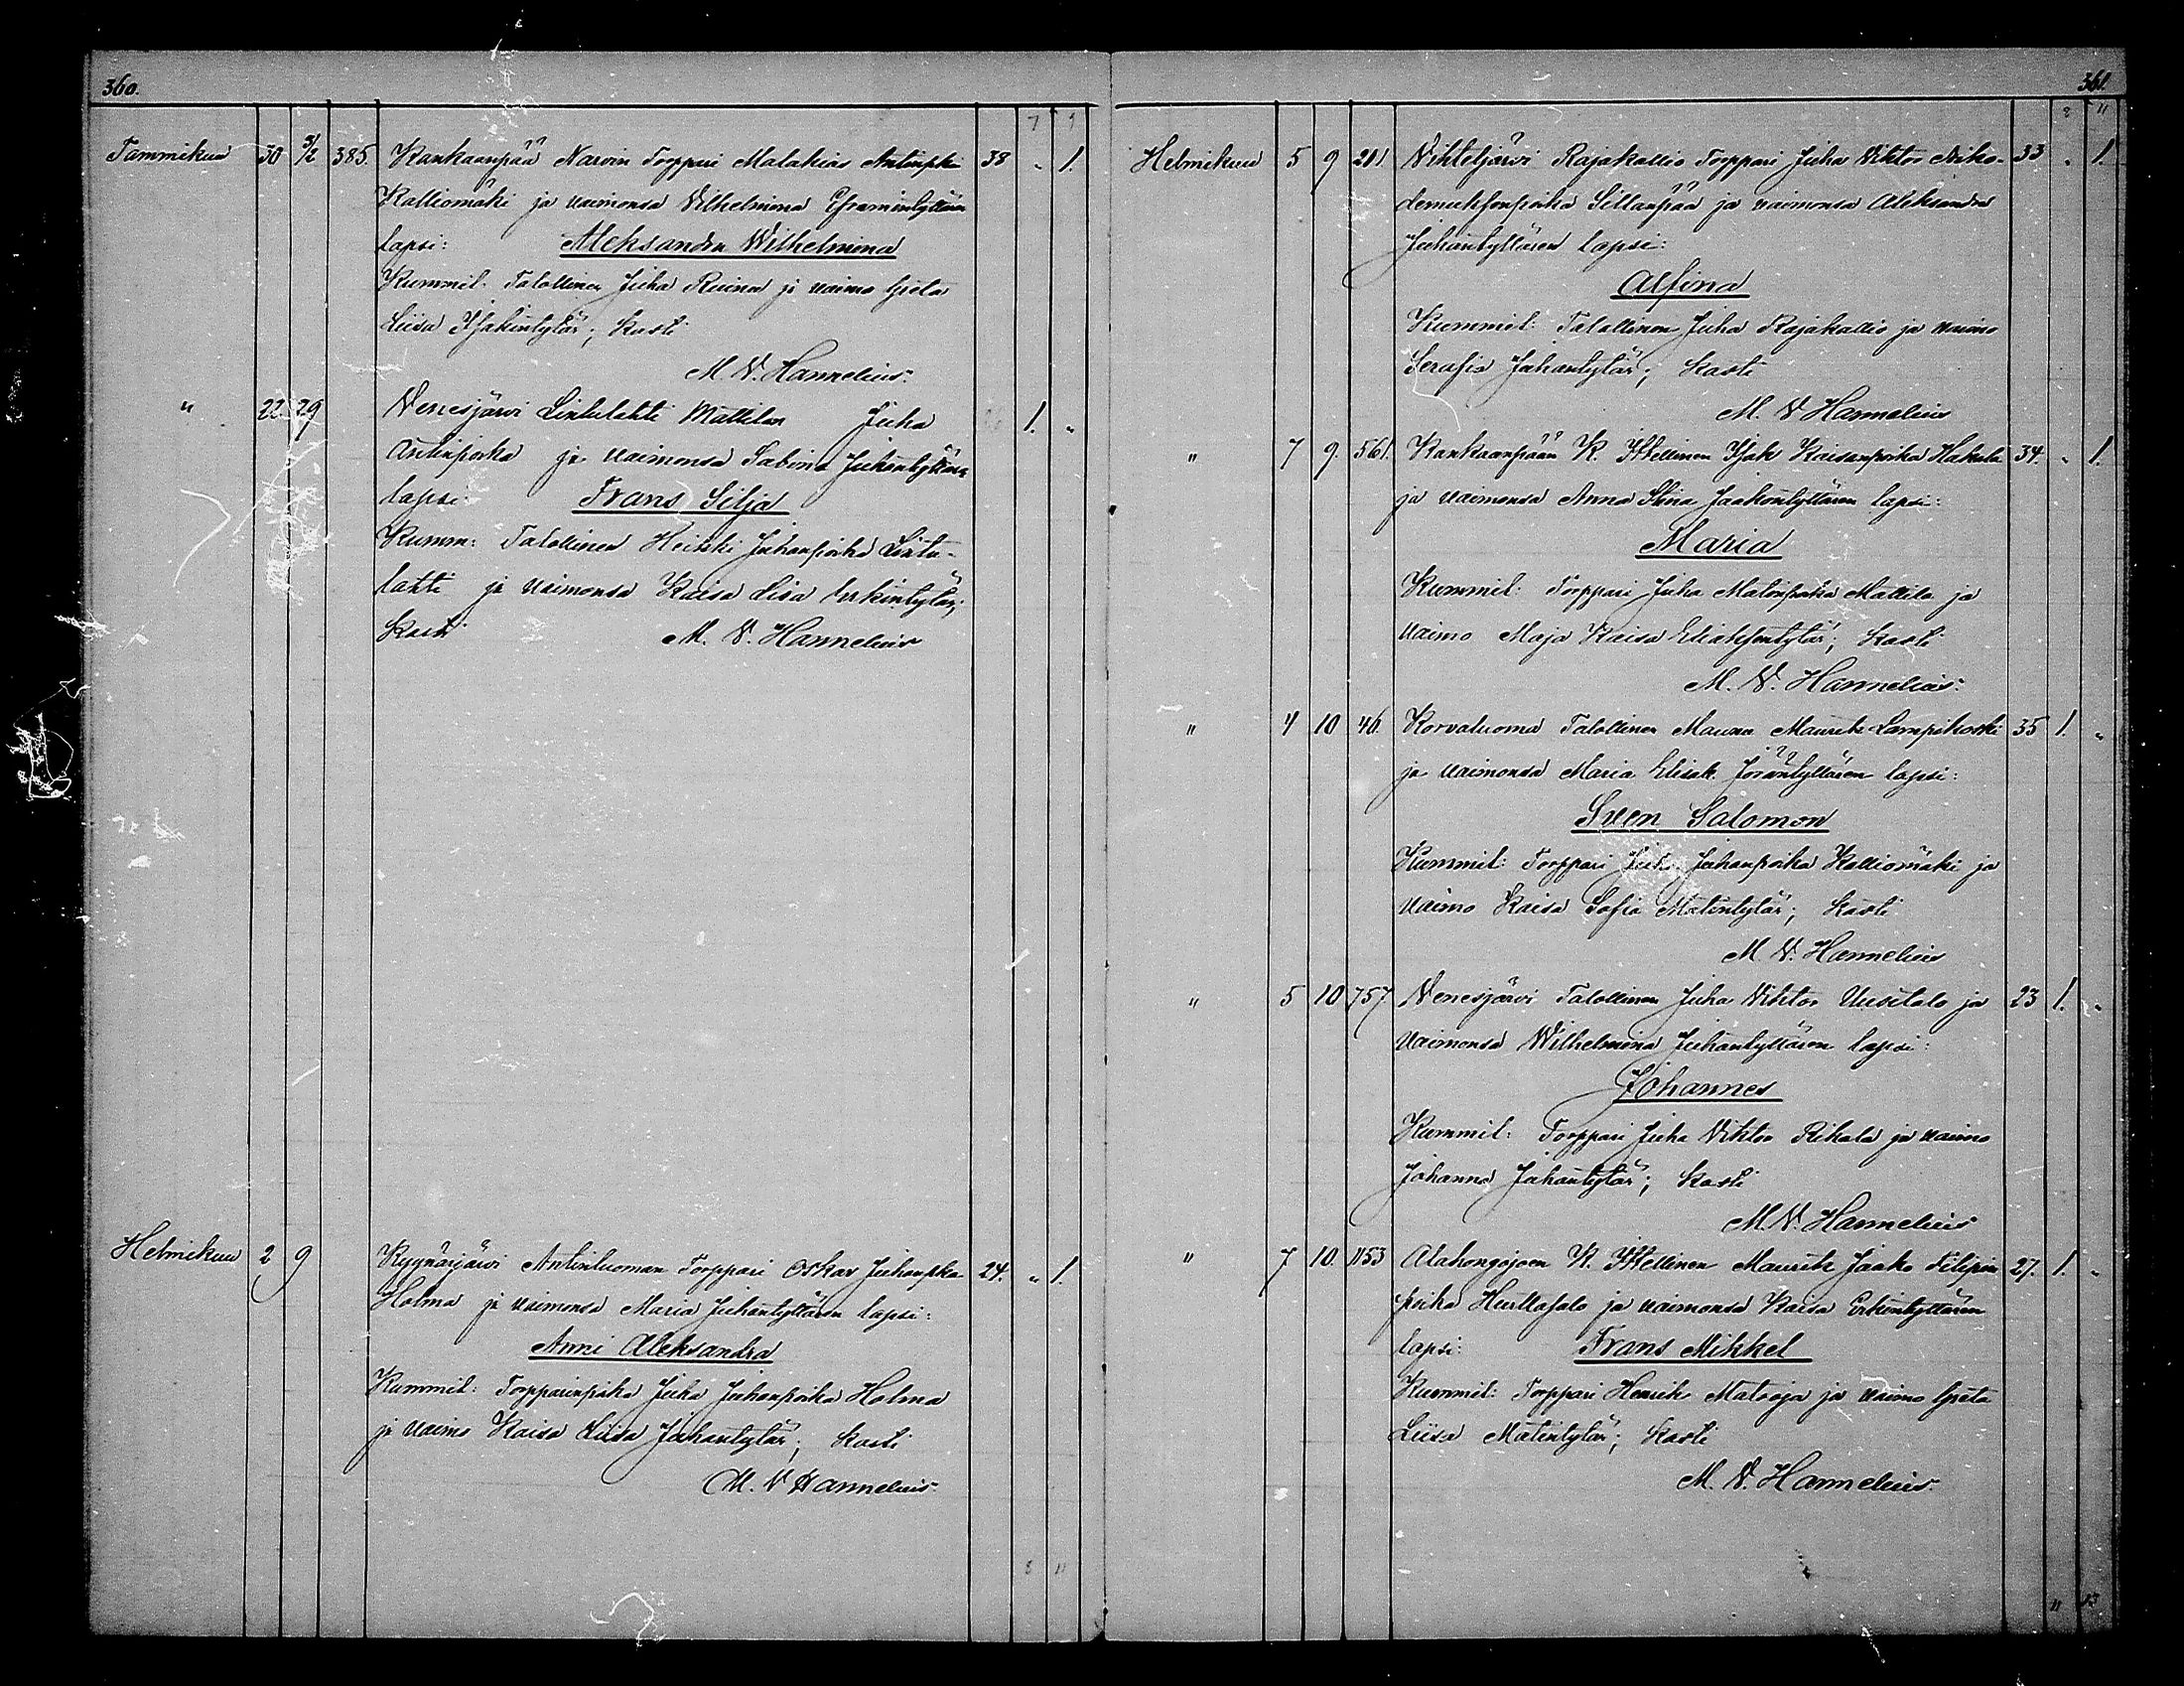 360.
7 9
Tammikuu 30 5/2 385. Kankaanpää Narvin Torppari Malakias Antinpka 38 „ 1.
Kalliomäki ja vaimonsa Vilhelmina Eframintyttären
lapsi: Aleksandra Wilhelmina
Kummit. Talollinen Juha Ruuna ja vaimo Greta
Liisa Isakintytär; Kasti
M. V. Hannelius.
„ 22. 29 Venesjärvi Lintulahti Mattilan Juha 1. „
Antinpoika ja vaimonsa Sabina Juhantyttären
lapsi: Frans Silja
Kumm: Talollinen Heikki Juhanpoika Lintu-
lahti ja vaimonsa Kaisa Lisa Erkintytär;
Kasti M. V. Hannelius
Helmikuu 2 9 Kyynärjärvi Antinluoman Torppari Oskar Juhanpka 24. „ 1.
Holma ja vaimonsa Maria Juhantyttären lapsi:
Anni Aleksandra
Kummit: Torpparinpoika Juha Juhanpoika Holma
ja vaimo Kaisa Liisa Juhantytär; Kasti
M. V Hannelius.
8 11
361.
8 11
Helmikuu 5 9 201. Vihteljärvi Rajakallio Torppari Juha Viktor Niko- 33 „ 1.
demuksenpoika Sillanpää ja vaimonsa Aleksandra
Juhantyttären lapsi:
Alfina
Kummit: Talollinen Juha Rajakallio ja vaimo
Serafia Juhantytär; Kasti
M. V Hannelius
„ 7 9. 561. Kankaanpään K. Itellinen Isak Kaisanpoika Hakala 34. „ 1.
ja vaimonsa Anna Stina Jaakontyttären lapsi:
Maria
Kummit: Torppari Juha Matinpoika Mattila ja
vaimo Maja Kaisa Eliaksentytär; Kasti
M. V. Hannelius.
„ 4 10 46. Korvaluoma Talollinen Maunu Maurits Lampikoski 35 1. „
ja vaimonsa Maria Elisab. Jöräntyttären lapsi:
Sven Salomon
Kummit: Torppari Juha Juhanpoika Kalliomäki ja
vaimo Kaisa Sofia Matintytär; Kasti
M. V. Hannelius
„ 5 10 757 Venesjärvi Talollinen Juha Viktor Uusitalo ja 23 1. „
vaimonsa Wilhelmina Juhantyttären lapsi:
Johannes
Kummit: Torppari Juha Viktor Rikala ja vaimo
Johanna Juhantytär; Kasti
M. V. Hannelius
„ 7 10. 1153 Alahongojoen K. Itellinen Maurits Jaako Filipin 27. 1. „
poika Hurttasalo ja vaimonsa Kaisa Erkintyttären
lapsi: Frans Mikkel
Kummit: Torppari Henrik Matooja ja vaimo Greta
Liisa Matintytär; Kasti
M. V. Hannelius.
11 13